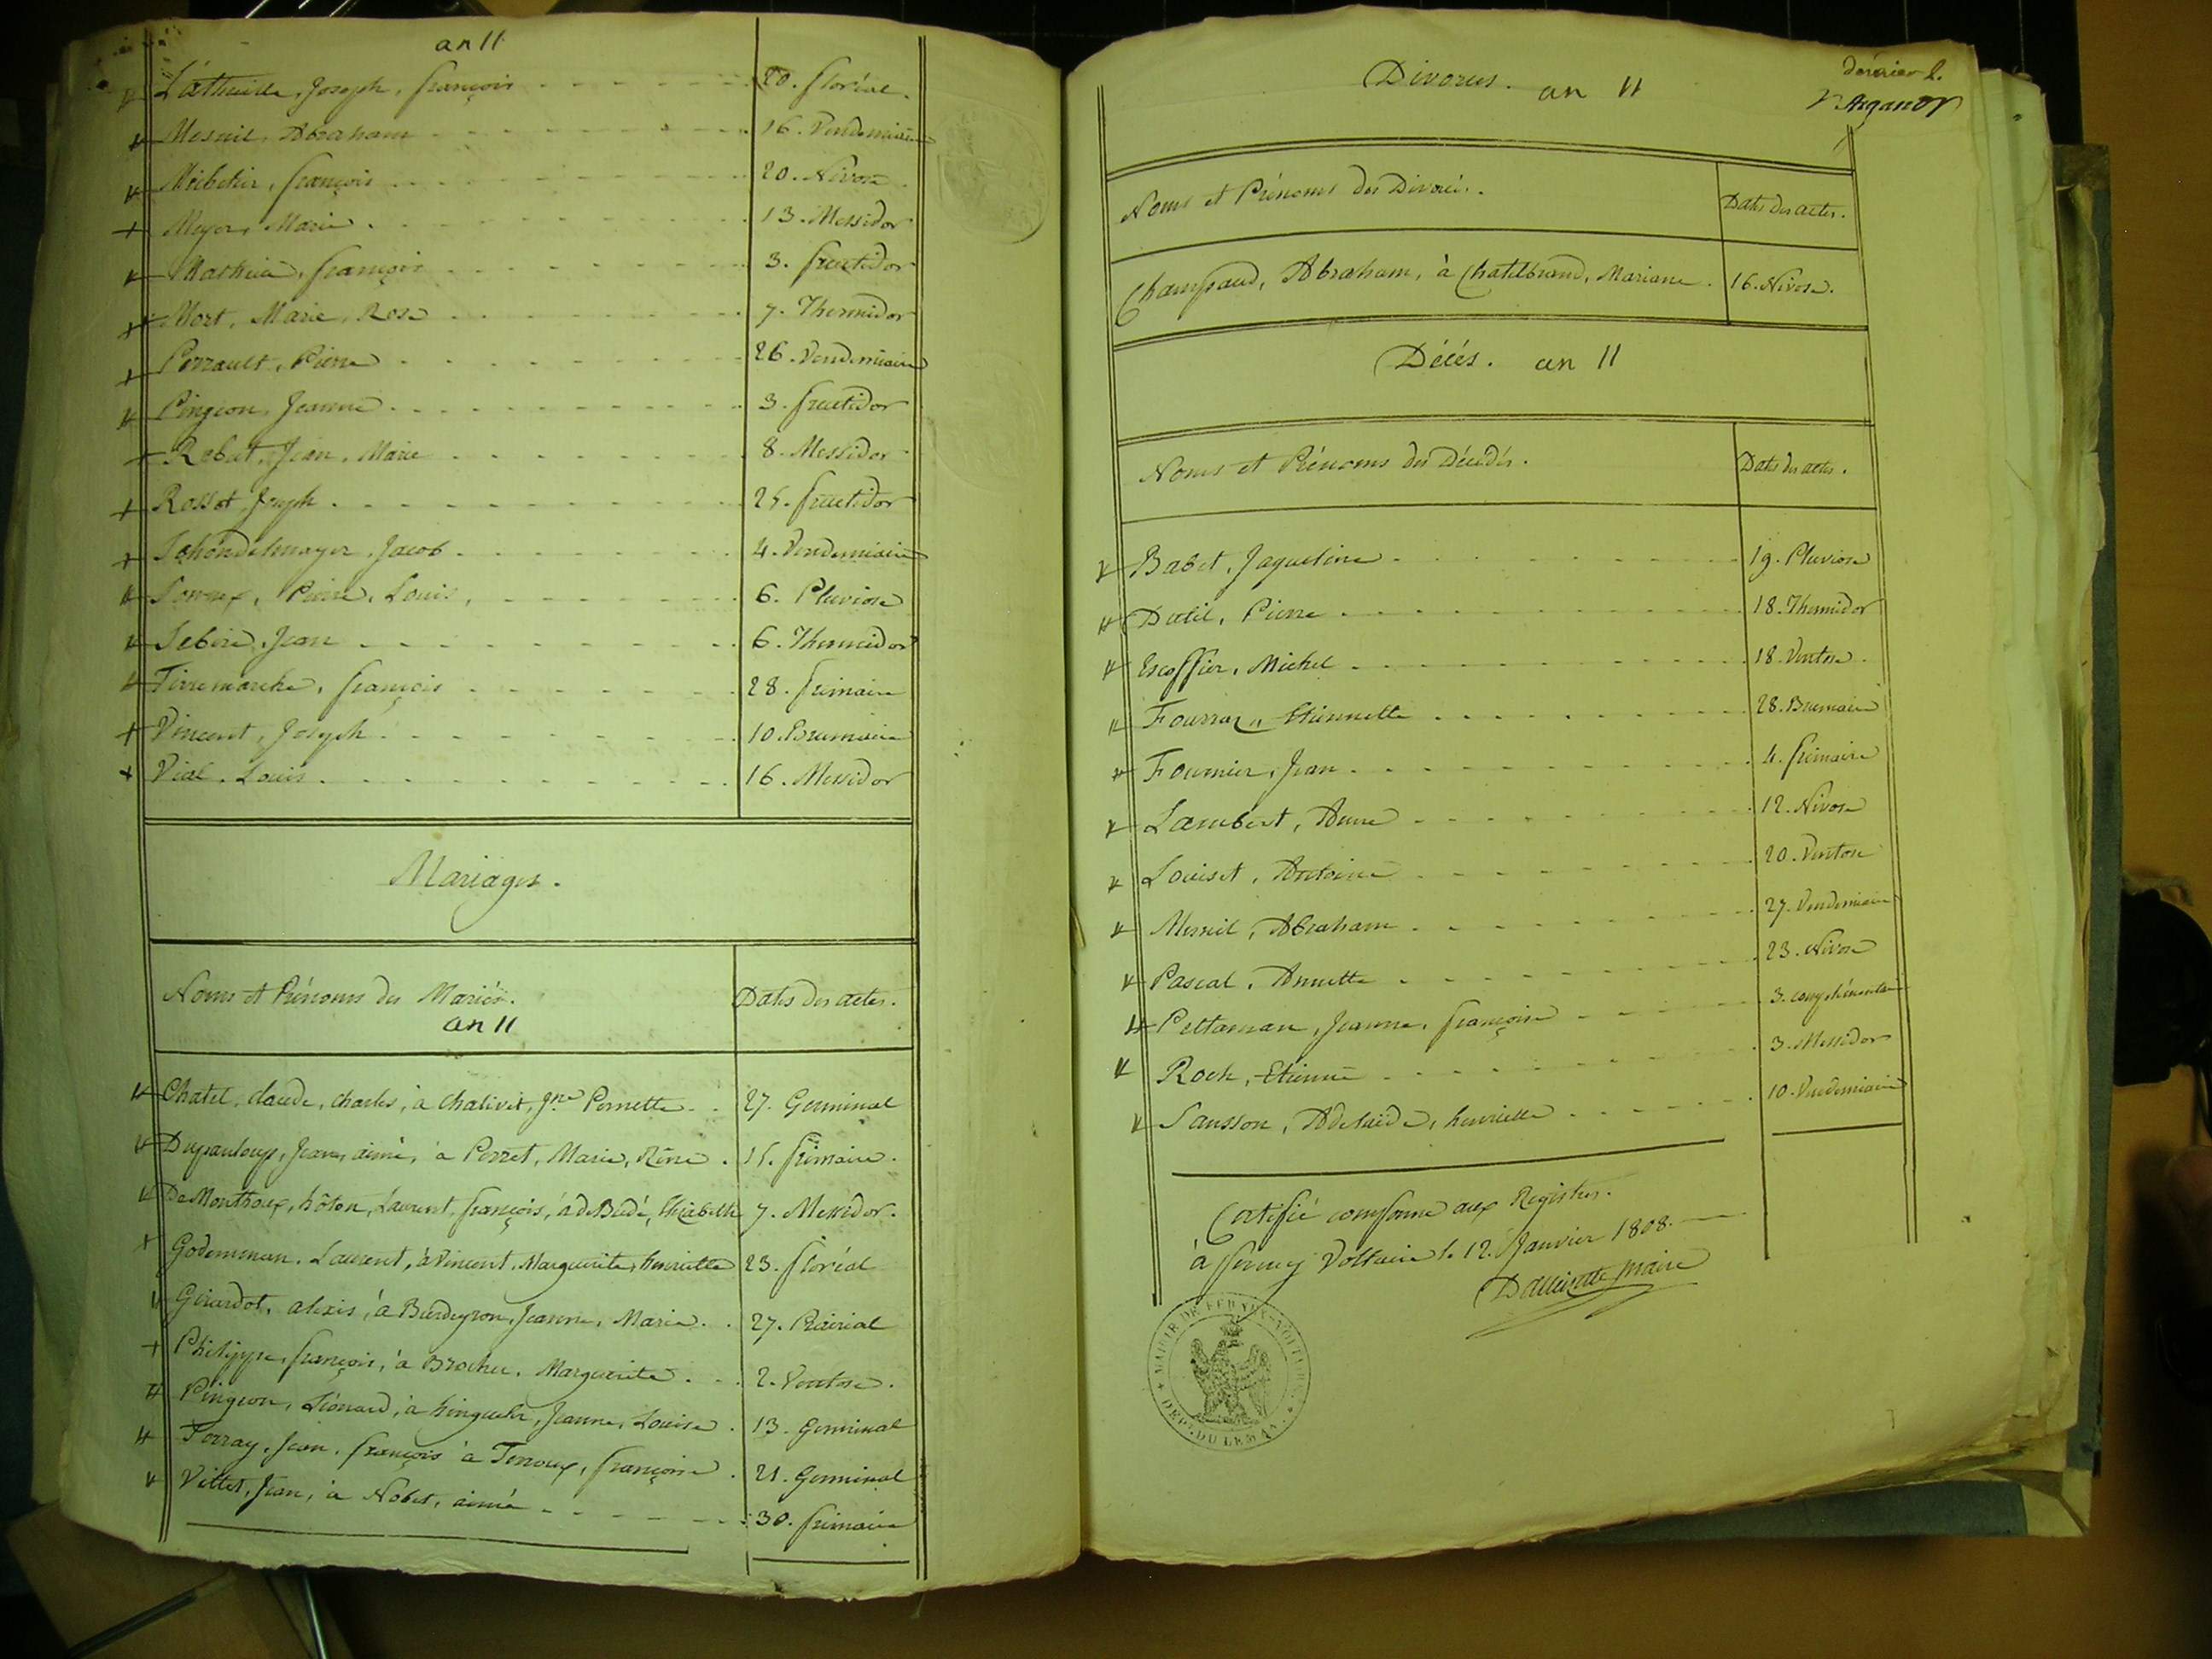 an 11
Lathuille, Joseph, françois 20. floréal.
Mesnil, Abraham 16. Vendemiaire
françois 20. Nivose
Meyer, Marie 13. Messidor
Mathieu, françois 3. fructidor
Mort, Marie, Rose 7. Thermidor
Perrault, Pierre 26. Vendemiaire
Pingeon, Jeanne 3. fructidor
Rebut, Jean, Marie 8. Messidor
Rossot, Joseph 25. fructidor
Schondelmayer, Jacob 4. Vendemiaire
Pierre, Louis, 6. Pluviose
Sebire, Jean 6. Thermidor
Tirremarche, françois 28. frimaire
Vincent, Joseph 10. Brumaire
Vial, Louis 16. Messidor
Mariages.
Noms et Prénoms des Mariés. Dates des actes.
an 11
Chatel, claude, charles, à Chalivet, Pernette 27. Germinal
Dupanloup, Jean, aimé, à Perret, Marie, Réné 15. frimaire.
De Monthoux, hôton, Laurent, françois, à de Budé, Elizabeth 7. Messidor.
Godemman, Laurent, à Vincent, Marguerite, henriette 23. floréal
Girardot, alexis, à Burdeyron, Jeanne, Marie 27. Prairial
Philippe, françois, à Brocher, Marguerite 2. Ventose.
Pingeon, Léonard, à Jeanne, Louise 13. Germinal
Terray, Jean, françois à Tenoux, françoise 21. Germinal
Villet, Jean, à Nobet, aimée 30. frimaire
dernier f.
Divorces. an 11
Noms et Prénoms des Divorcés. Dates des actes.
Champaud, Abraham, à Chatelbrand, Mariane. 16. Nivose.
Décés. an 11
Noms et Prénoms des Décédés. Dates des actes.
Babet, Jaqueline 19. Pluviose
Datil, Pierre 18. Thermidor
Escoffier, Michel 18. Ventose
Fourraz, Etiennette 28. Brumaire
Fournier, Jean 4. frimaire
Lambert, Anne 12. Nivose
Louiset, Antoine 20. Ventose
Mesnil, Abraham 27. Vendemiaire
Pascal, Annette 23. Nivose
Peltaman, Jeanne, françoise 3. complémentaire
Roch, Etienne 3. Messidor
Sansson, Adelaïde, henriette 10. Vendemiaire
Certifié conforme aux Registres.
à ferney Voltaire le 12. Janvier 1808.
maire
MAIRIE DE FERNEY-VOLTAIRE
DEP. DU LEMAN